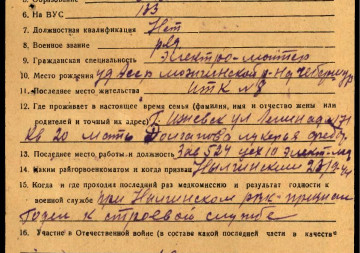 5. Образование
6. На ВУС 183
7. Должностная квалификация Нет
8. Военное звание ряд
9. Гражданская специальность Электро-монтер
10. Место рождения уд Асср можгинской р-н д
11. Последнее место жительства ИТК № 8
12. Где проживает в настоящее время семья (фамилия, имя и отчество жены или
родителей и точный их адрес) г. Ижевск ул Ленина д 171
Кв 20 мать лукерья
13. Последнее место работы и должность Зав 524 цех 10
14. Каким райгорвоенкоматом и когда призван Нылгинский
15. Когда и где проходил последний раз медкомиссию и результат годности к
военной службе при Нылгинском рвк - признан
Годен к строевой службе
16. Участие в Отечественной войне (в составе какой последней части в качестве